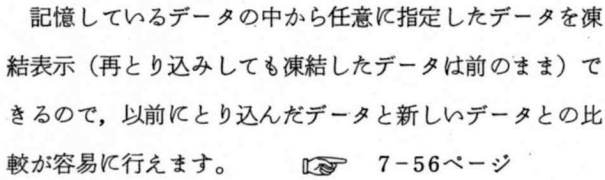 記憶しているデータの中から任意に指定したデータを凍
結表示（再とり込みしても凍結したデータは前のまま）で
きるので，以前にとり込んだデータと新しいデータとの比
較が容易に行えます。　　☞　7-56ページ